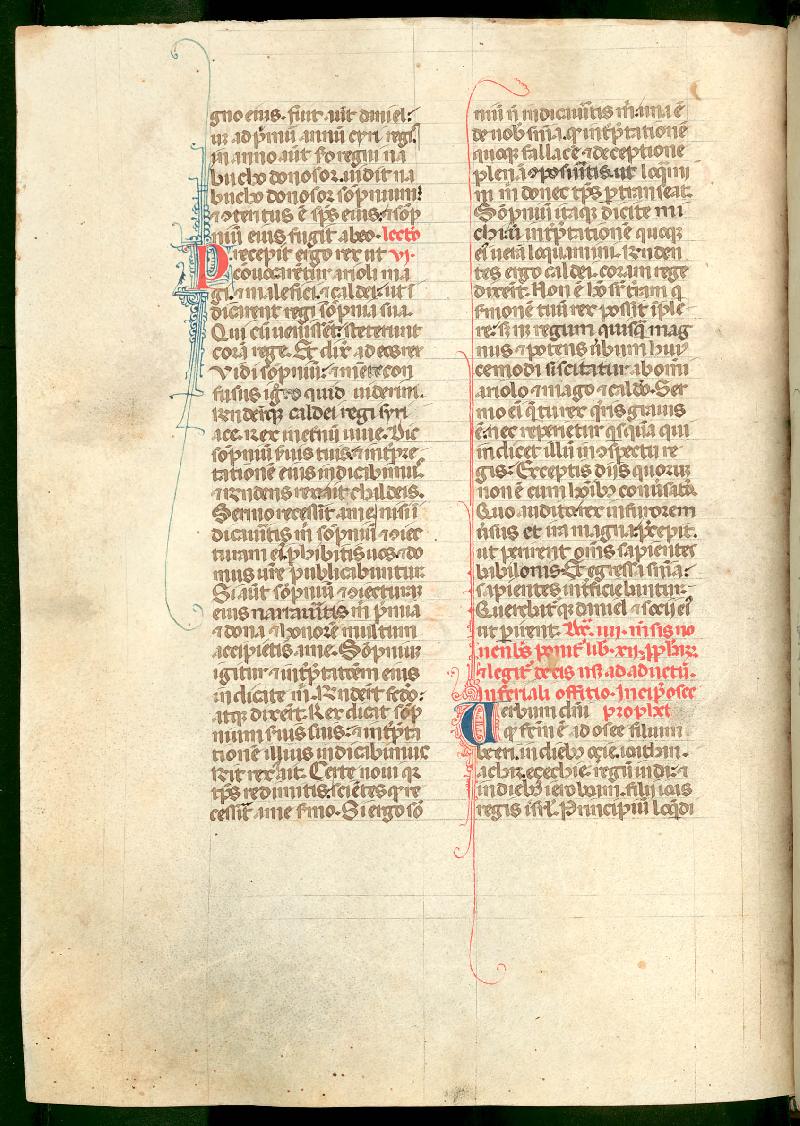 gno eius. fuit aūt daniel:
us ad p̄mū annū cyri regis
in anno aūt .ii. regni na
bucho donosor. uidit na
bucho donosor sōpnium:
⁊ ꝯtritus ē sp̄s eius: ⁊ sōp
niū eius fugit ab eo. lectō
Precepit ergo rex ut vi.
ꝯuocarētur arioli ma
gi. ⁊ malefici. ⁊ caldei: ut ī
dicarent regi sōpnia sua.
Qui cū uenissēt: steterunt
corā rege. Et dix̄ ad eos rex
Vidi sōpniū: ⁊ mēte con
fusus ig̅ro quid uiderim.
R̄nderūtq̄ caldei regi syri
ace. Rex in etnū uiue. Dic
sōpniū s̄uis tuis: ⁊ int̄pre
tationē eius indicabimus.
⁊ R̄ndens rex ait chaldeis.
Sermo recessit a me. nisi ī
dicaūitis m̄ sōpniū ⁊ ꝯiec
turam ei: p̄hibitis uos. ⁊ do
mus ur̄e publicabuntur.
Si aūt sōpniū ⁊ ꝯiecturā
eius narraūitis m̄ p̄mia
⁊ dona ⁊ honorē multum
accipietis a me. Sōpnium
igitur ⁊ int̄p̄tatōem eius
indicate m̄. R̄nderūt sc̄do:
atq̄ dixerūt. Rex dicat sōp
nium s̄uis suis: ⁊ int̄p̄ta
tionē illius indicabimus
R̄it rex ⁊ ait. Certe noui qr
tp̄s redimitis. scientes q̄ re
cessit a me s̄mo. Si ergo sō
niū n̄ indicaūitis m̄: una ē
de nob̄ sn̄ia. q̄ int̄p̄tationē
quoq̄ fallacē ⁊ deceptione
plenā ꝯposuitis. ut loq̄mi
ni m̄ donec tp̄s p̄transeat.
Sōpniū itaq̄ dicite mi
chi: ut int̄p̄tationē quoq̄
ei uerā loquamini. R̄nden
tes ergo caldei. coram rege
dixerūt. Non ē hō sr̄ t̄ram q̄
s̄monē tuū rex possit īple
re: s; n̄ regum quisq̄ mag
nus ⁊ potens ūbum huꝰ
cemodi sciscitatur ab omī
ariolo ⁊ mago ⁊ caldeo. Ser
mo eī q̄ tu rex q̄ris grauis
ē: nec repietur q̄sq̄ā qui
indicet illū in ꝯspectu re
gis: Exceptis diis quorum
non ē cum hoībꝰ conūsatō.
Quo audito rex in furorem
ūsus et in ira magna: p̄cepit.
ut perirent om̄s sapientes
babilonis. Et egressa sn̄ia:
sapientes int̄ficiebantur.
Querebātq̄ daniel ⁊ socii ei
ut p̄irent. Ab. iiii. in sis no
uenb̄is ponit̄ lib. xii. p̄pharꝝ
⁊ legit̄ tēcis usq̄ ad aduētū.
In feriali offitio. Incip̄ osee
Uerbum dn̄i prophēt
q̄ fcm̄ ē ad osee filium
beeri. in diebꝰ ozie. ioathan.
achaz. ezechie. regū iuda: ⁊
in diebꝰ ieroboam. filii ioas
regis isrl̄. Principiū loq̄ndi